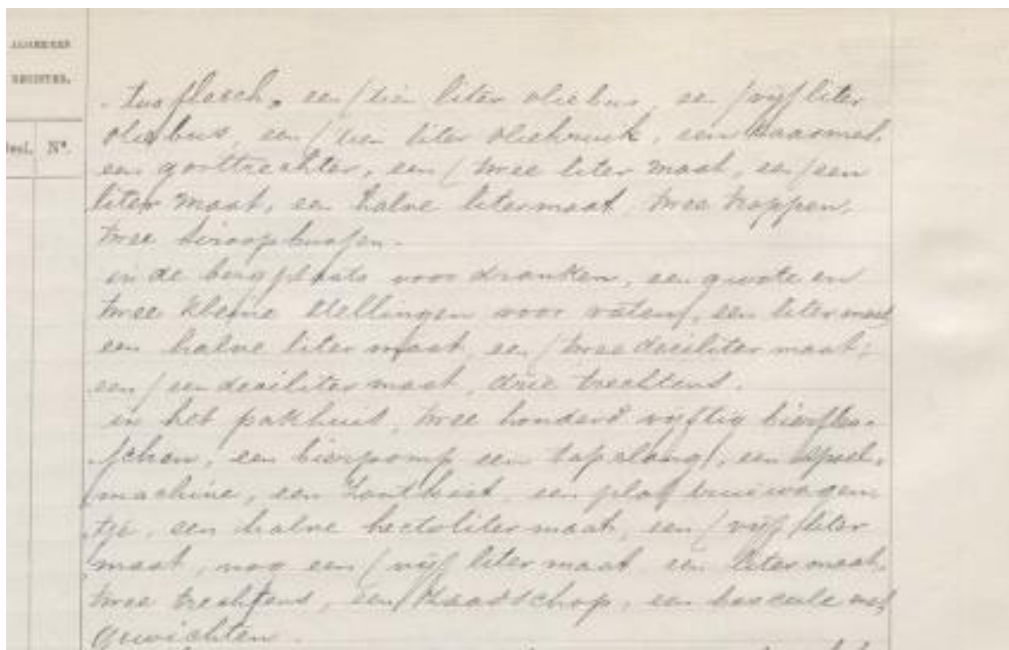 ALGEMEEN
REGISTER.
Deel. No.
flesch, een tien liter oliebus, een /vijf/liter
oliebus, een / tien liter oliekruik, een kaasmes,
een gorttrechter, een / twee liter maat, een/een
liter maat, een halve litermaat, twee trappen,
twee siroopkannen.
in de bergplaats voor dranken, een groote en
twee kleine stellingen voor vaten, een liter maat
een halve liter maat, een / twee deciliter maat,
een / een deciliter maat, drie trechters.
in het pakhuis, twee honderd vijftig bierfles-
schen, een bierpomp, een tapslang, een spoel-
machine, een zoutkist, een plat kruiwagen
tje, een halve hectoliter maat, een / vijf liter
maat, nog een / vijf liter maat, een liter maat,
twee trechters, een zaadschop, een bascule met
gewichten.